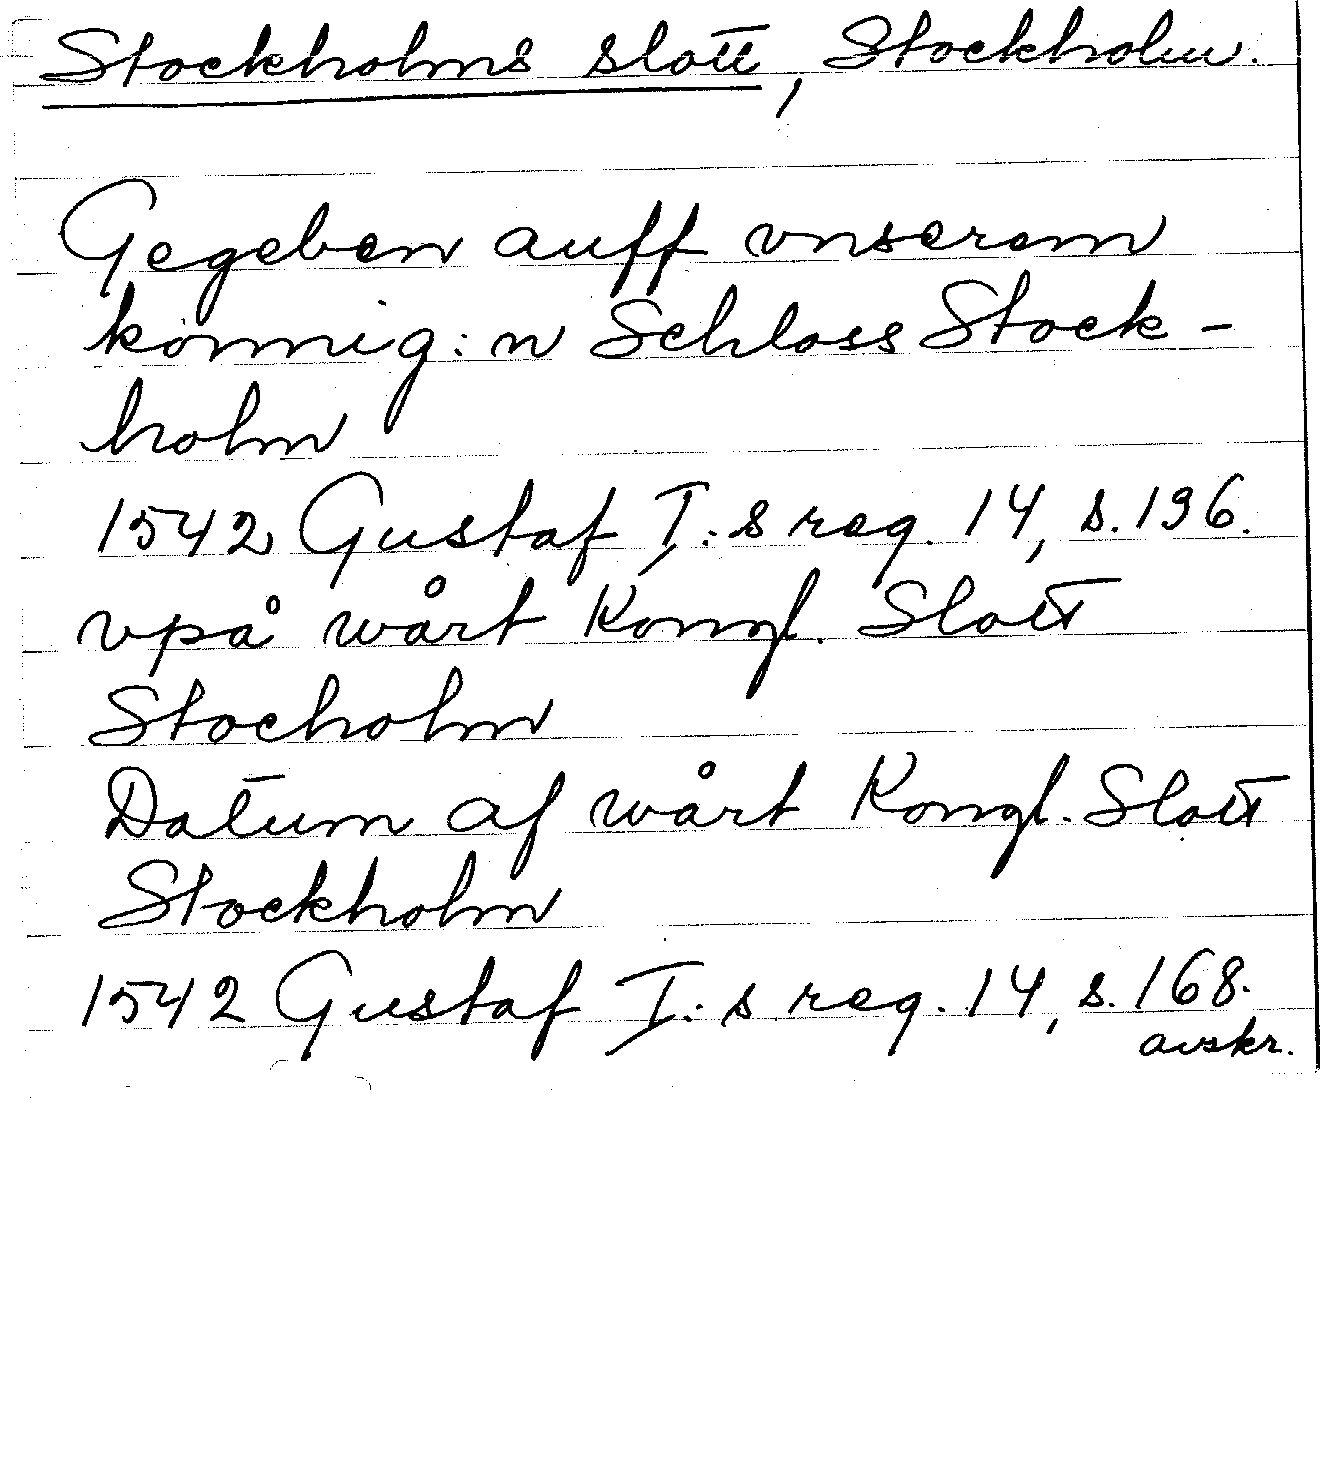 Stockholms slott, Stockholm.
Gegeben auff vnserem
konnig:n Schloss Stock-
holm
1542 Gustaf I:s reg. 14, s. 196.
vpå wårt Kongl. Slott
Stocholm
Datum af wårt Kongl. Slott
Stockholm
1542 Gustaf I:s reg. 14, s. 168.
avskr.